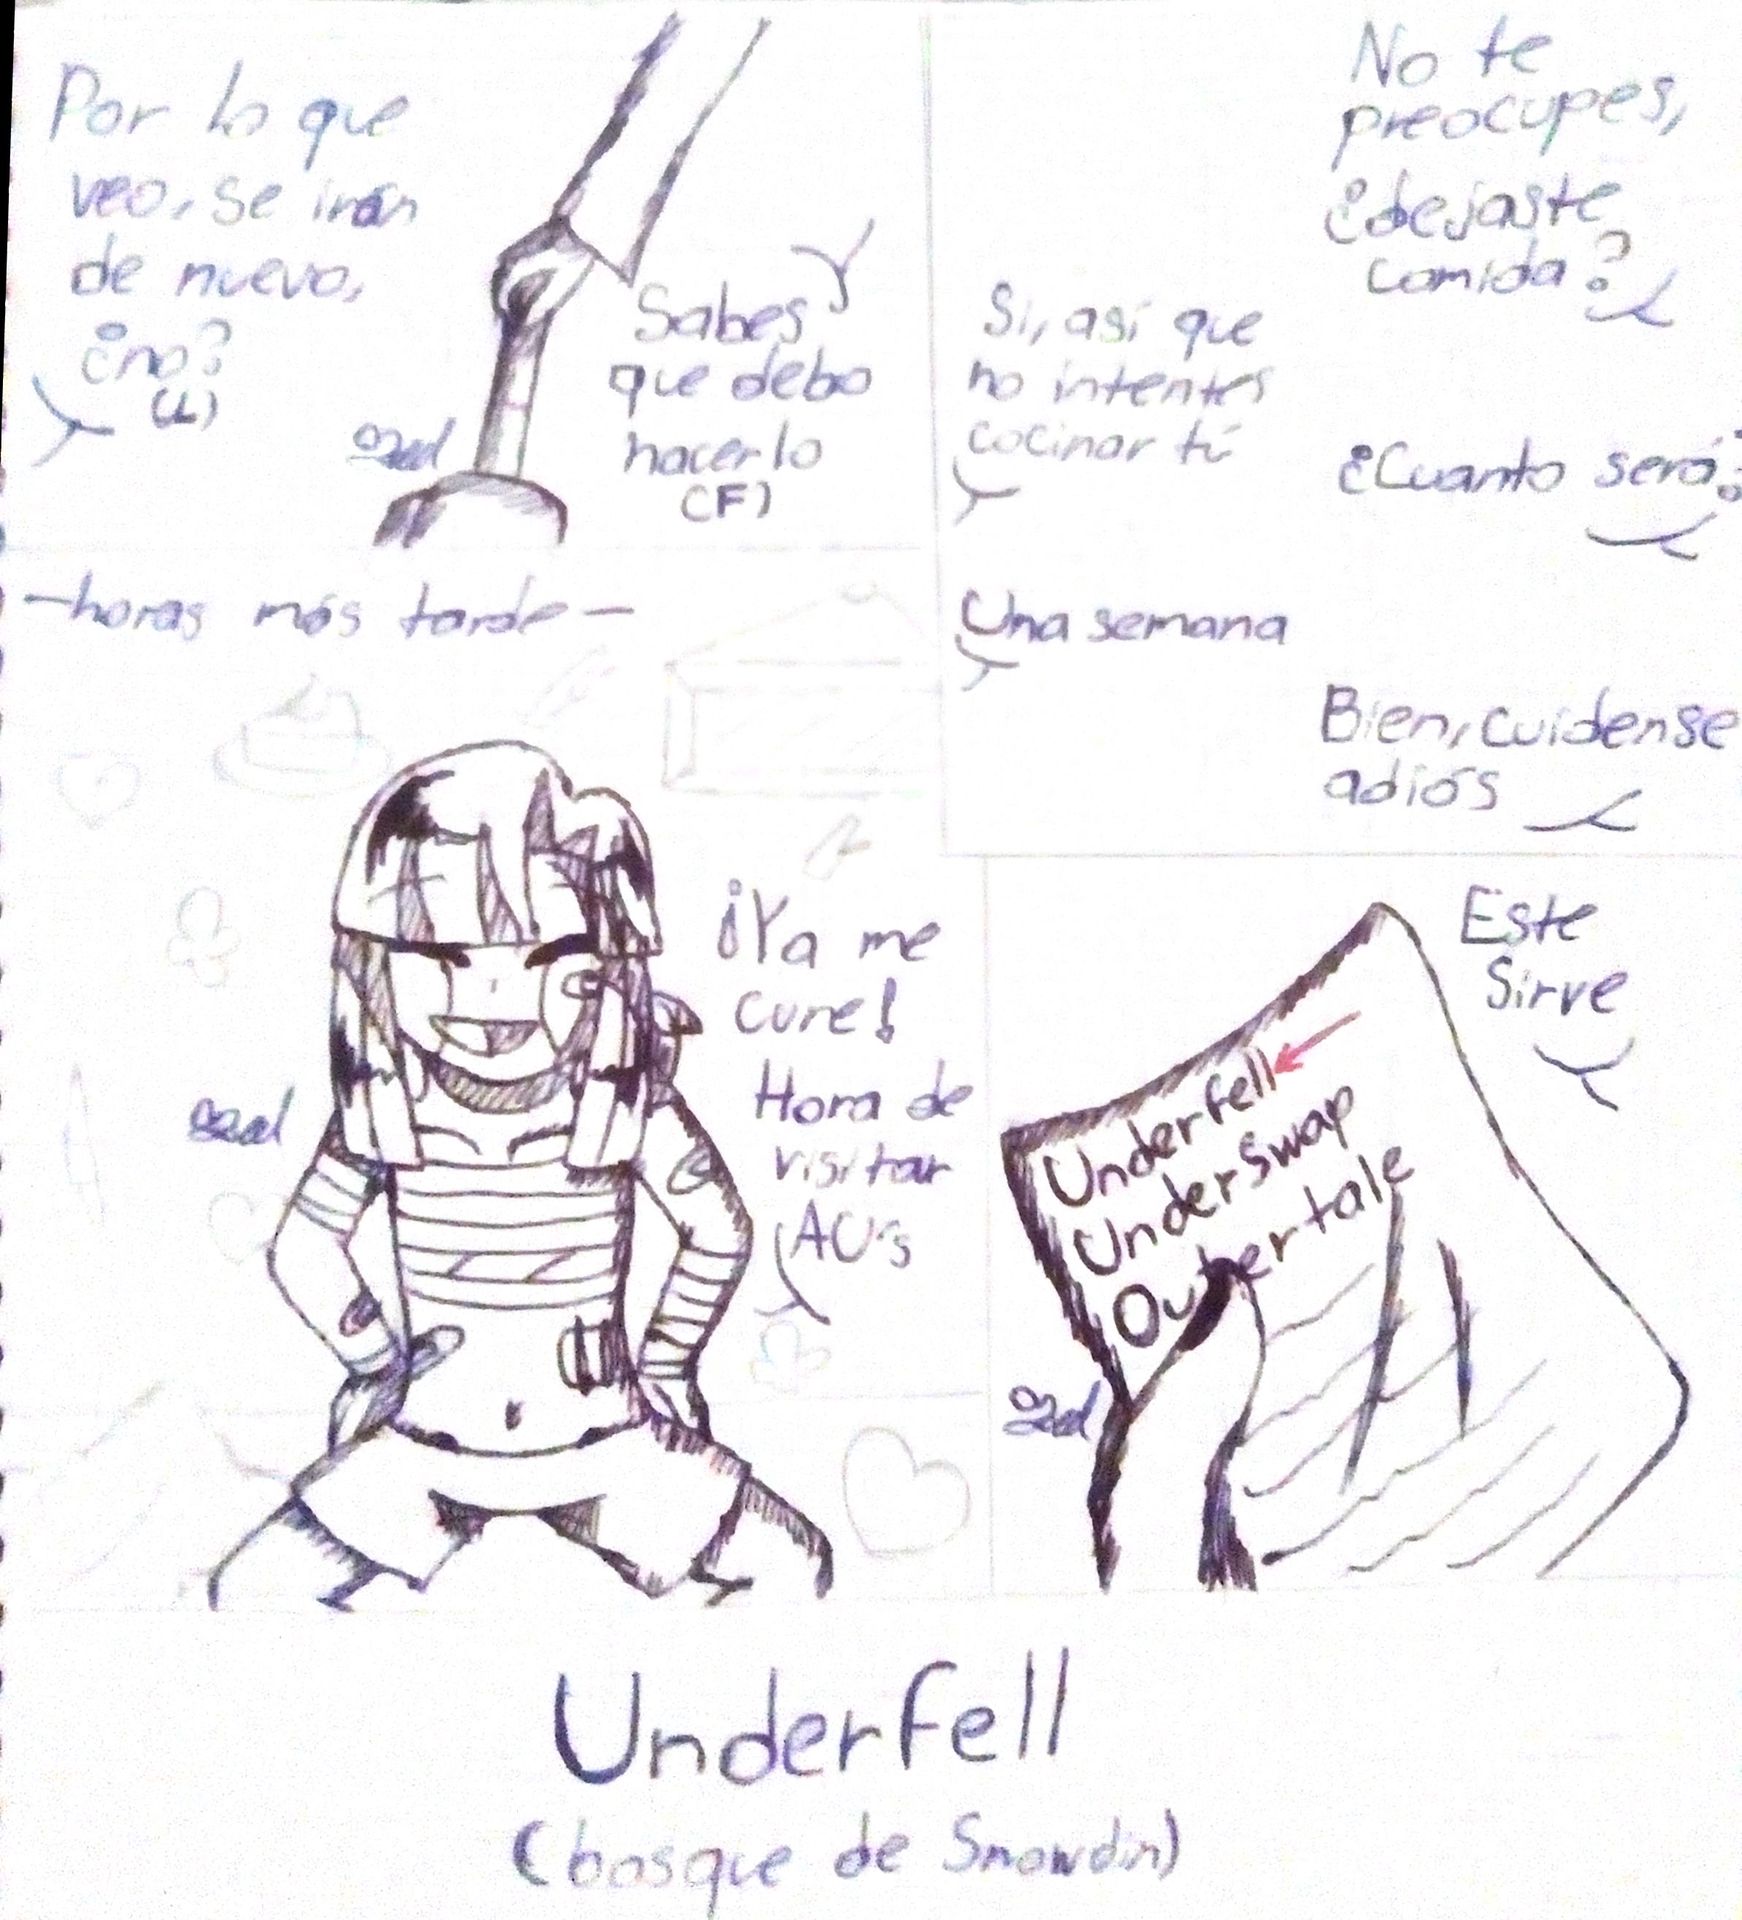 Por lo que
veo, se irán
de nuevo,
¿no?
(L)
Sabes
que debo
hacerlo
(F)
No te
preocupes,
¿dejaste
comida?
Si, asi que
no intentes
cocinar tú
¿Cuanto será?
Una semana
Bien, cuidense
adiós
—horas más tarde—
¡Ya me
cure!
Hora de
visitar
AU's
Este
sirve
Underfell
Underswap
Outertale
Underfell
(bosque de Snowdin)